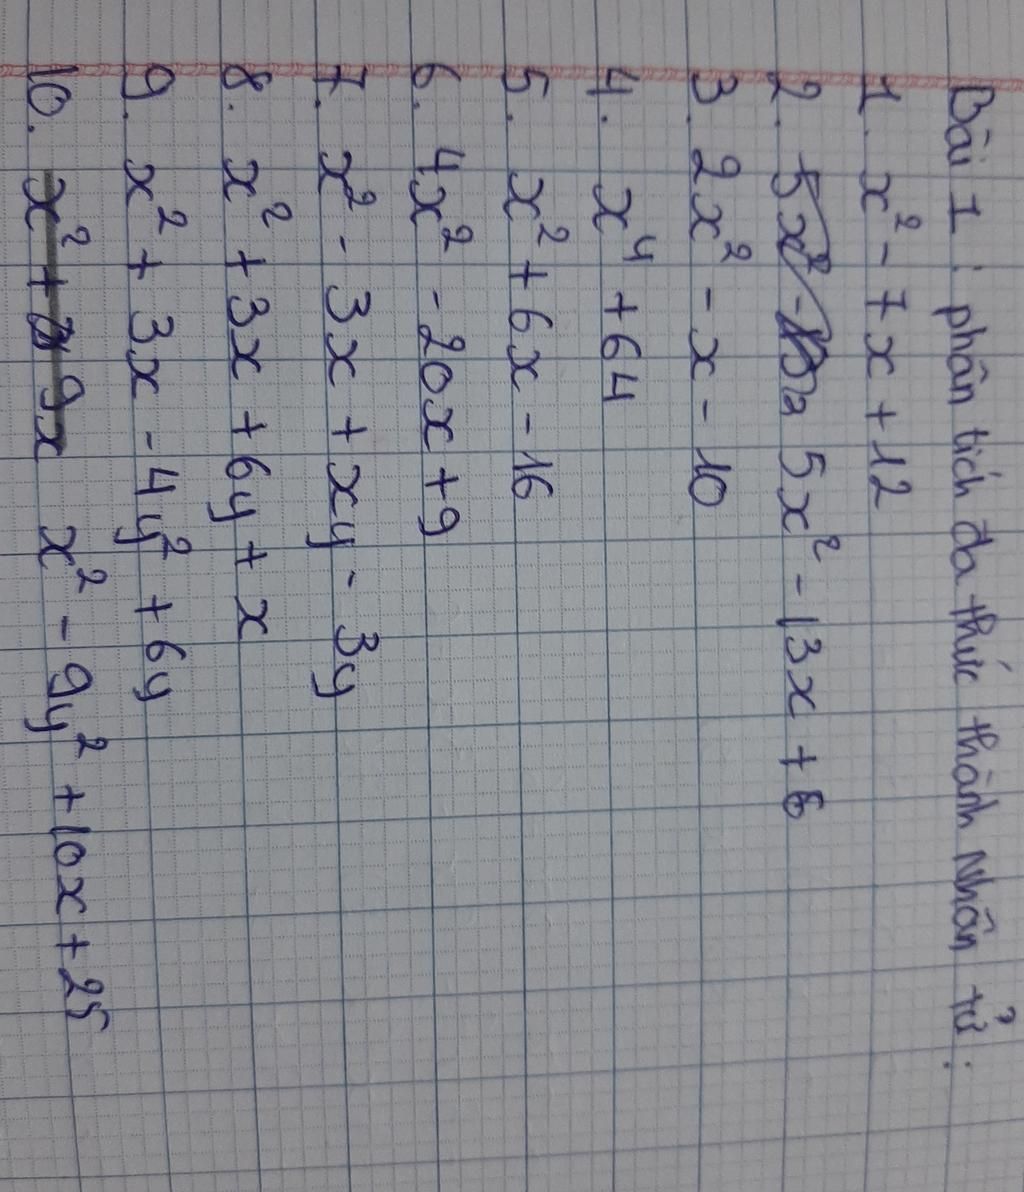 Bài 1: phân tích đa thức thành nhân tử:
1. x² - 7x + 12
2. 5x² - 13x + 6
3. 2x² - x - 10
4. x⁴ + 64
5. x² + 6x - 16
6. 4x² - 20x + 9
7. x² - 3x + xy - 3y
8. x² + 3x + 6y + x
9. x² + 3x - 4y² + 6y
10. x² - 9y² + 10x + 25